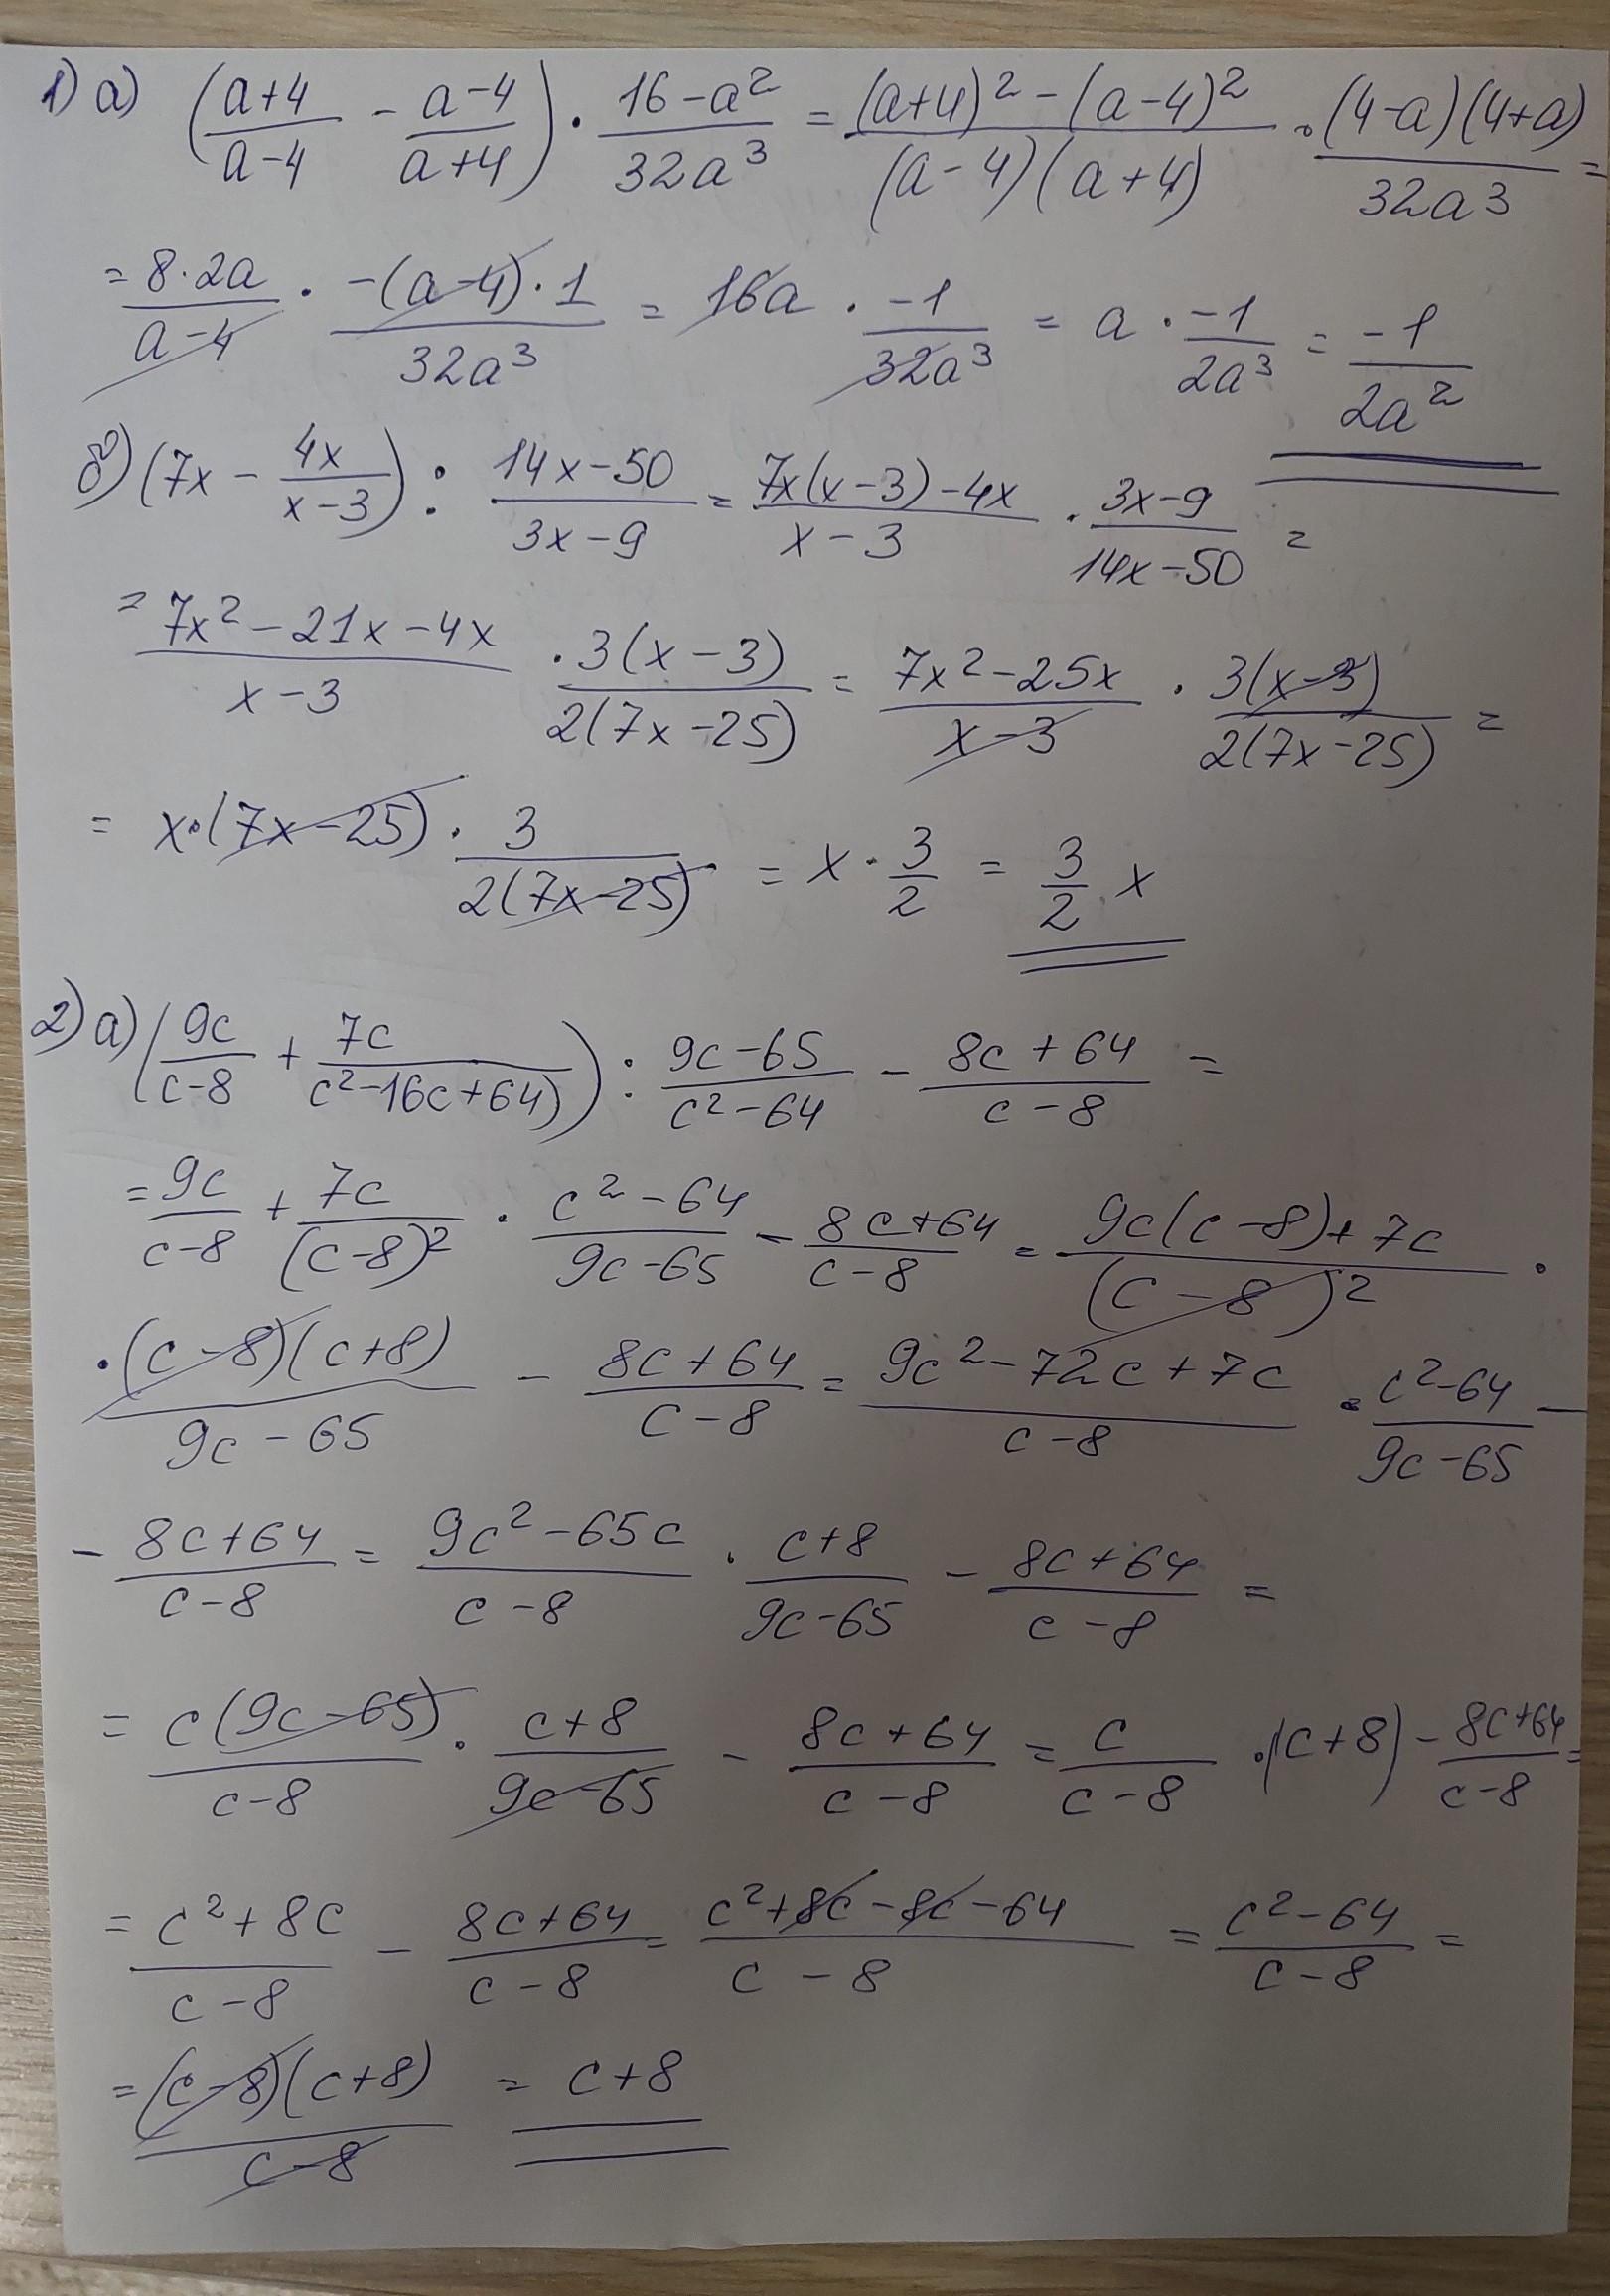 1) а) ((a+4)/(a-4) - (a-4)/(a+4)) · (16-a²)/(32a³) = ((a+4)² - (a-4)²)/((a-4)(a+4)) · ((4-a)(4+a))/(32a³) =
= (8·2a)/(a-4) · (-(a-4)·1)/(32a³) = 16a · (-1)/(32a³) = a · (-1)/(2a³) = (-1)/(2a²)
б) (7x - (4x)/(x-3)) : (14x-50)/(3x-9) = (7x(x-3)-4x)/(x-3) · (3x-9)/(14x-50) =
= (7x²-21x-4x)/(x-3) · (3(x-3))/(2(7x-25)) = (7x²-25x)/(x-3) · (3(x-3))/(2(7x-25)) =
= x·(7x-25) · 3/(2(7x-25)) = x · 3/2 = 3/2 x
2) а) ((9c)/(c-8) + (7c)/(c²-16c+64)) : (9c-65)/(c²-64) - (8c+64)/(c-8) =
= (9c)/(c-8) + (7c)/(c-8)² · (c²-64)/(9c-65) - (8c+64)/(c-8) = (9c(c-8)+7c)/(c-8)² ·
· ((c-8)(c+8))/(9c-65) - (8c+64)/(c-8) = (9c²-72c+7c)/(c-8) · (c²-64)/(9c-65) -
- (8c+64)/(c-8) = (9c²-65c)/(c-8) · (c+8)/(9c-65) - (8c+64)/(c-8) =
= (c(9c-65))/(c-8) · (c+8)/(9c-65) - (8c+64)/(c-8) = c/(c-8) · (c+8) - (8c+64)/(c-8) =
= (c²+8c)/(c-8) - (8c+64)/(c-8) = (c²+8c-8c-64)/(c-8) = (c²-64)/(c-8) =
= ((c-8)(c+8))/(c-8) = c+8